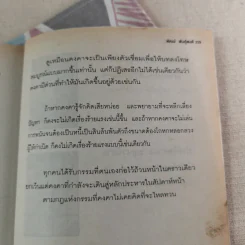 ดูเหมือนดงตาจะเป็นเพียงตัวเชื่อมเพื่อให้
ขึ้นเท่านั้น แต่ก็ปฏิเสธอีกไม่ได้เช่นเดียวกันว่า
มีส่วนที่ทำให้มันเกิดขึ้นอยู่ด้วยเช่นกัน
ถ้าหาก รู้จักคิดเสียหน่อย และพยายามที่จะหลีกเลี่ยง
ปัญหา ก็คงจะไม่เกิดเรื่องร้ายแรงเช่นนี้ขึ้น และถ้าหาก จะไม่เล่น
การพนันจนต้องเป็นหนี้เป็นสินล้นพ้นตัวถึงขนาดต้อง
ผู้ให้กำเนิด ก็คงไม่เกิดเรื่องร้ายแรงแบบนี้เช่นเดียวกัน
ทุกคนได้รับกรรมที่ตนเองก่อไว้ถ้วนหน้าในคราวเดียว
ยกเว้นแต่ ที่กำลังจะเดินสู่หลักประหารในสัปดาห์หน้า
ตามกฎแห่งกรรมที่ ไม่เคยคิดที่จะ